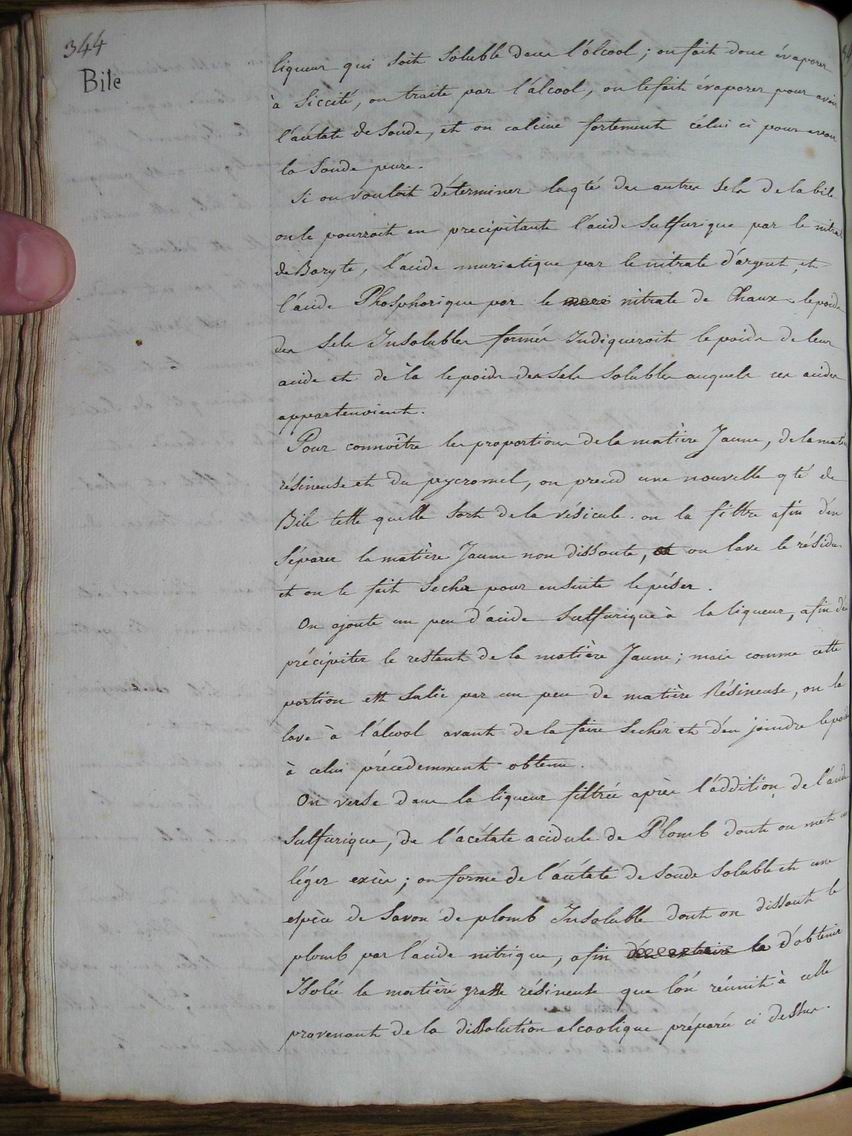 344
Bile
liqueur qui soit soluble dans l'alcool ; on fait donc évaporer
à siccité, on traite par l'alcool, on le fait évaporer pour avoir
l'acétate de soude, et on calcine fortement celui ci pour avoir
la soude pure.
Si on vouloit déterminer la qté des autres sels de la bile
on le pourroit en précipitant l'acide sulfurique par le nitrate
de Baryte, l'acide muriatique par le nitrate d'argent, et
l'acide Phosphorique par le nitrate de Chaux. le poids
des sels Insolubles formés Indiqueroit le poids de leur
acide et de là le poids des sels solubles auquels ces acides
appartenoient.
Pour connoître les proportions de la matière Jaune, de la matière
résineuse et du pycromel, on prend une nouvelle qté de
Bile telle quelle sort de la vésicule. on la filtre afin d'en
séparer la matière Jaune non dissoute, on lave le résidu
et on le fait secher pour ensuite le péser.
On ajoute un peu d'acide sulfurique à la liqueur, afin de
précipiter le restant de la matière Jaune ; mais comme cette
portion est salie par un peu de matière Résineuse, on la
lave à l'alcool avant de la faire secher et d'en joindre le poids
à celui précedemment obtenu.
On verse dans la liqueur filtrée après l'addition de l'acide
sulfurique, de l'acétate acidule de Plomb dont on met un
léger excès ; on forme de l'acétate de soude soluble et une
espèce de savon de plomb Insoluble dont on dissout le
plomb par l'acide nitrique, afin d'obtenir
Isolée la matière grasse résineuse que l'on réunit à celle
provenant de la dissolution alcoolique préparée ci dessus.